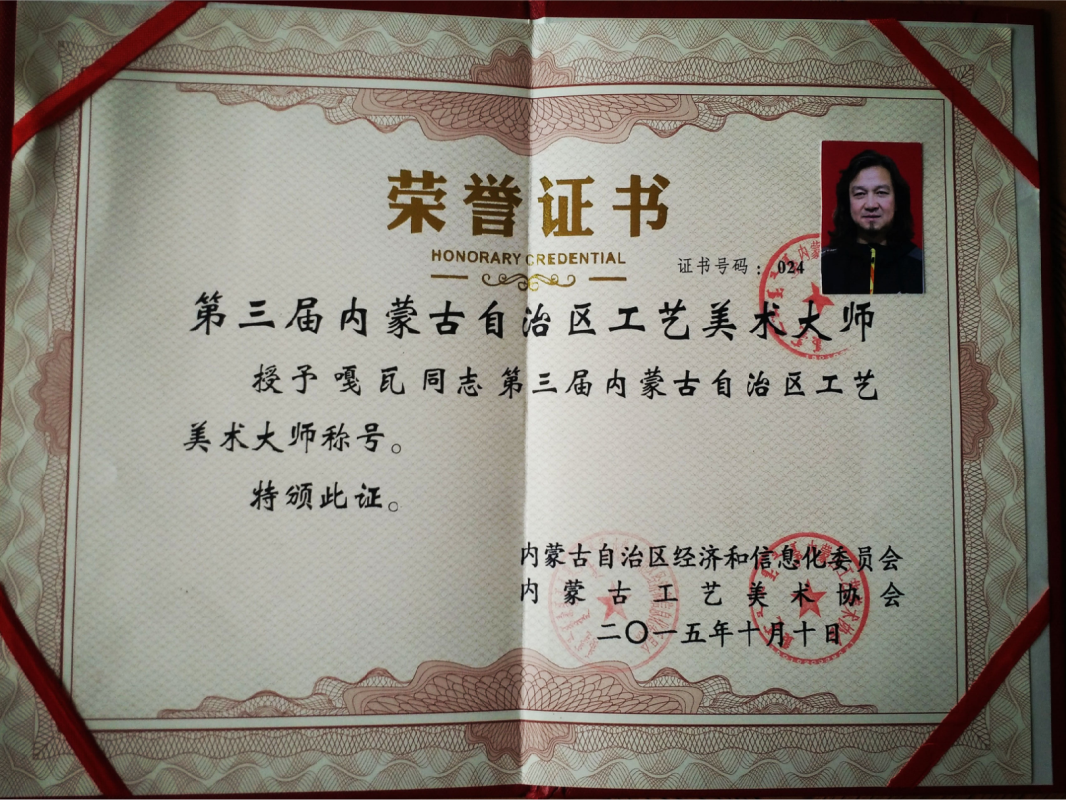 荣誉证书
HONORARY CREDENTIAL
证书号码：024
第三届内蒙古自治区工艺美术大师
授予嘎瓦同志第三届内蒙古自治区工艺
美术大师称号。
特颁此证。
内蒙古自治区经济和信息化委员会
内蒙古工艺美术协会
二〇一五年十月十日